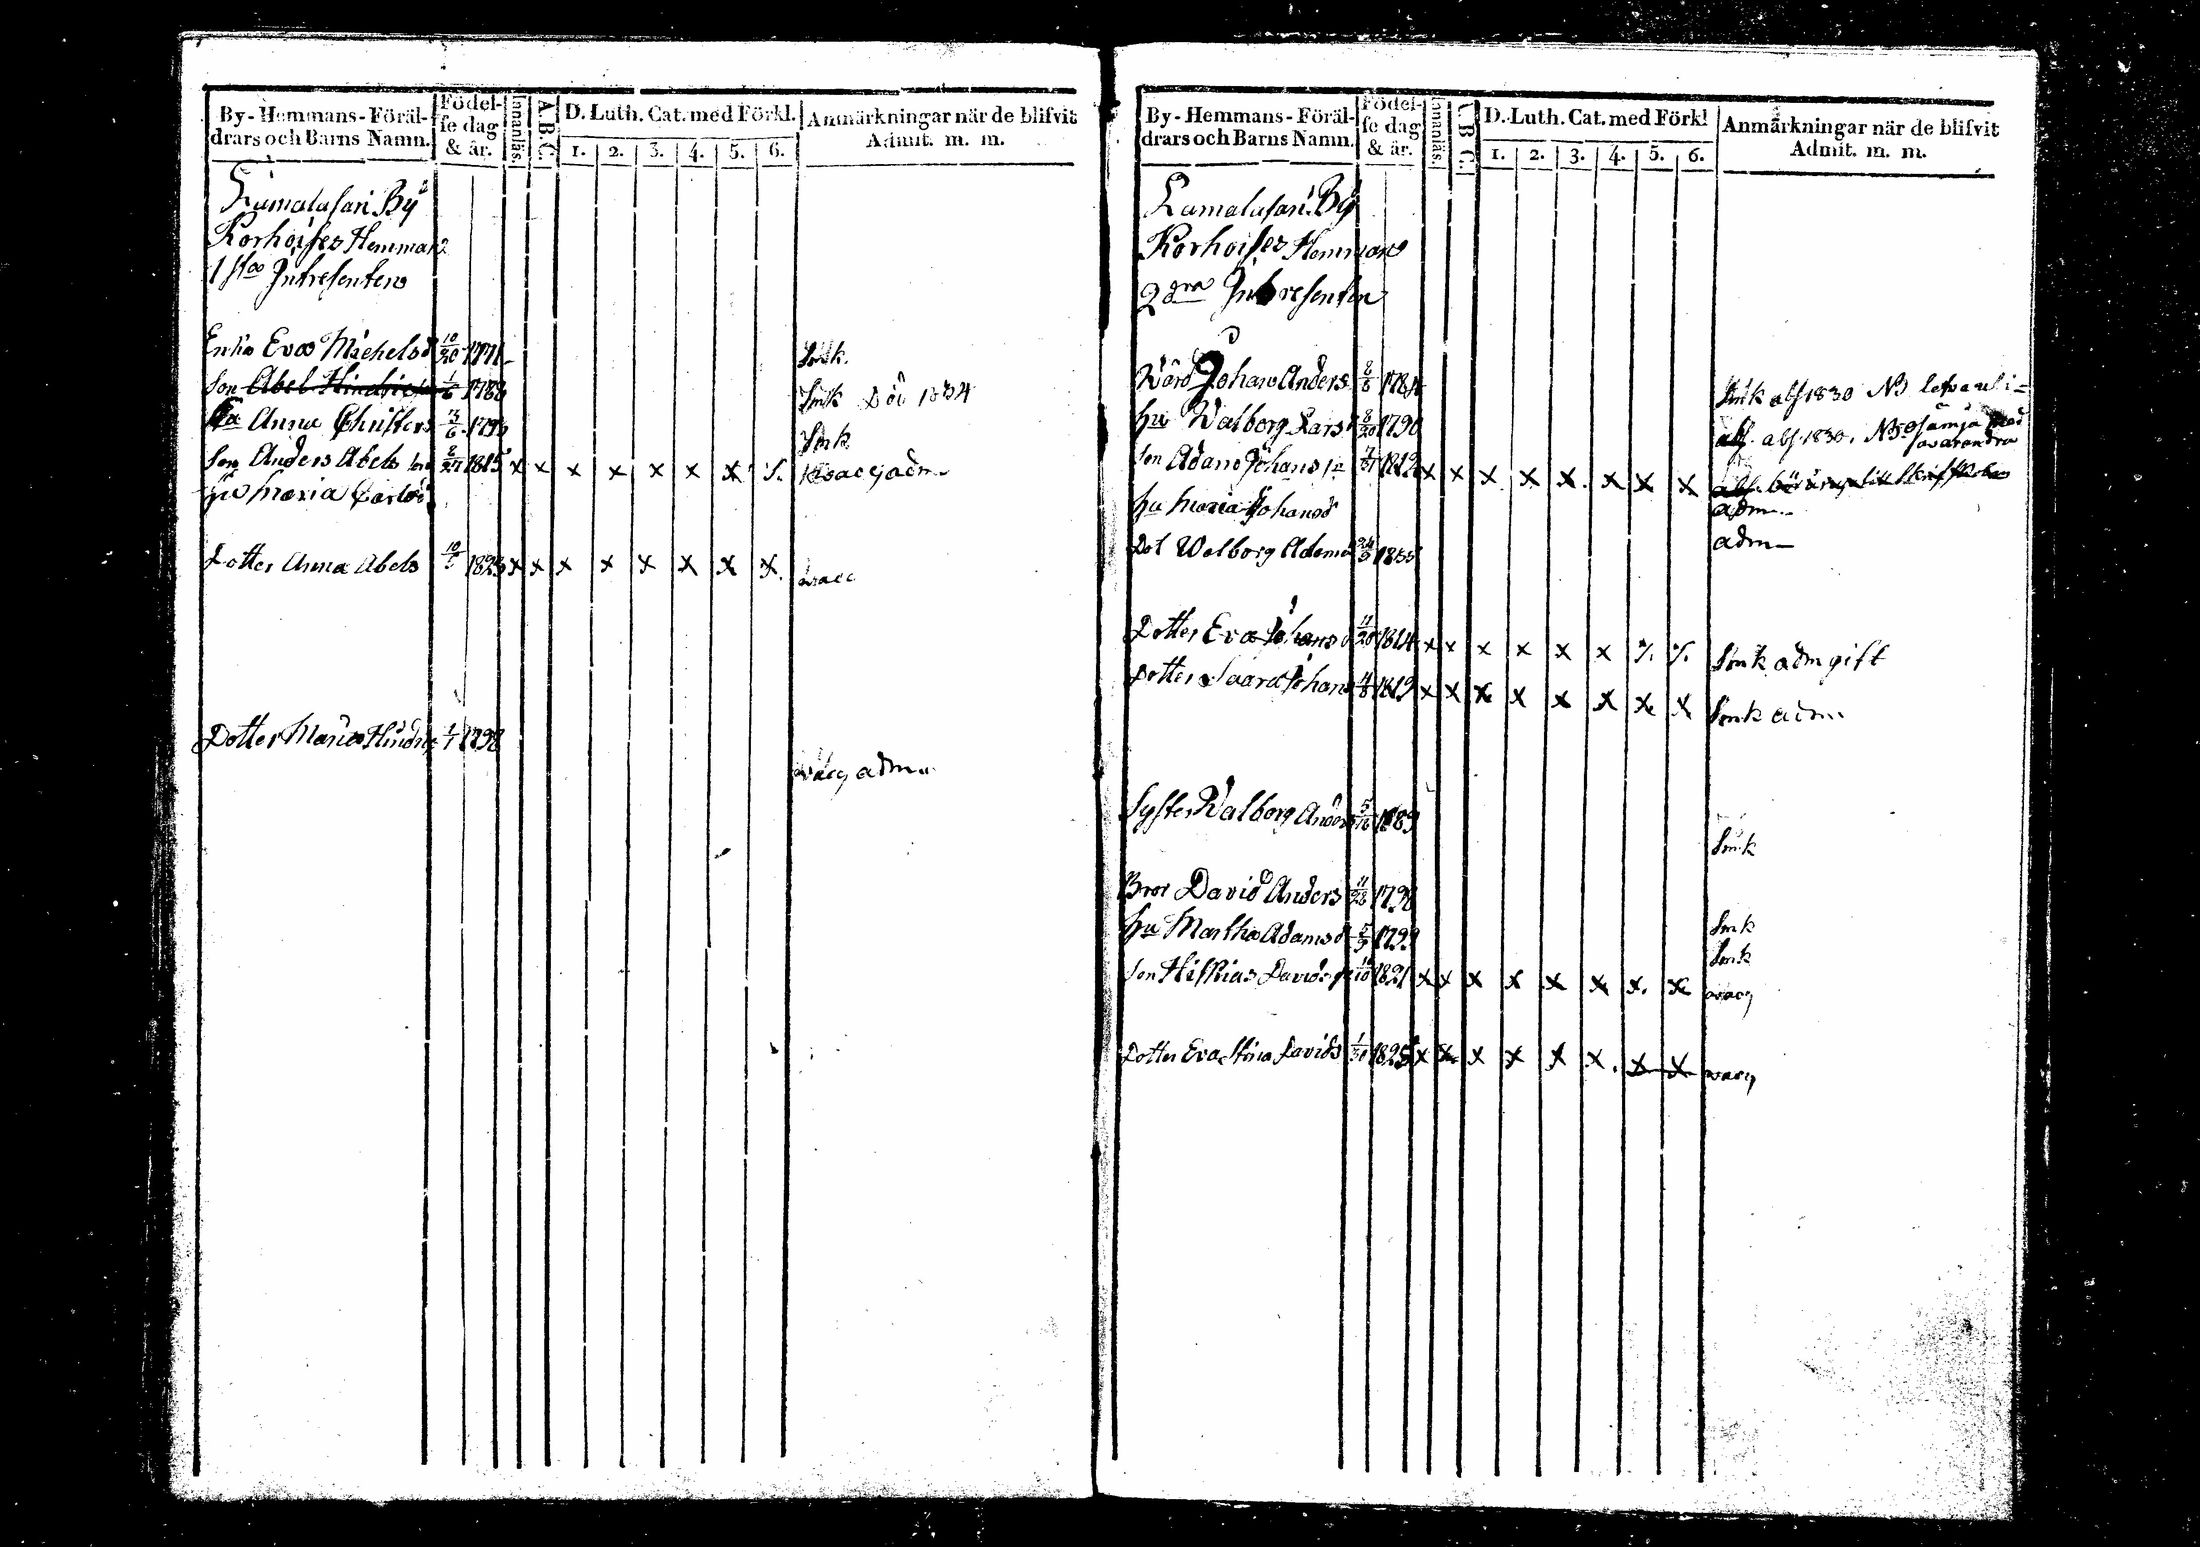 By-Hemmans-Föräl-
drars och Barns Namn.
Födel-
se dag
& år.
Innanläs.
A.B.C.
D. Luth. Cat. med Förkl.
1. 2. 3. 4. 5. 6.
Anmärkningar när de blifvit
Admit. m. m.
Lumalasari By
Korhoises Hemman
1sta Intresenten
Enka Eva Michelsd 10/20 1771
Smk.
Son Abel Hindric 1/6 1788
Smk Död 1834
Hu Anna Christers
Smk
Son Anders Abels son 8/27 1815 x x x x x x x
adm
Hu Maria Carlsd
Dotter Anna Abels 1823 x x x x x x x x
Dotter Maria Hindric 1/1 1798
adm
By-Hemmans-Föräl-
drars och Barns Namn.
Födel-
se dag
& år.
Innanläs.
A.B.C.
D. Luth. Cat. med Förkl
1. 2. 3. 4. 5. 6.
Anmärkningar när de blifvit
Admit. m. m.
Lumalasari By
Korhoises Hemman
2dra Intresenten
Värd Johan Anders 8/6 178
Smk abs 1830 NB lefva uti
Hu Walborg Lars 8/20 1790
abs 1830. NB osämja med
hvarandra
Son Adam Johans 1812 x x x x x x x x
adm
Hu Maria Johansd
adm
Dot Walborg Adams 1835
Dotter Eva Johansd 11/20 1814 x x x x x x
Smk adm gift
Dotter Saara Johans 1819 x x x x x x x x
Smk adm
Syster Walborg Anders 5/16 1789
Smk
Bror David Anders 11/28 1798
Smk
Hu Martha Adamsd 1799
Smk
Son Hiskias Davids 1821 x x x x x x x x
Dotter Eva Stina Davids 1/30 1825 x x x x x x x x